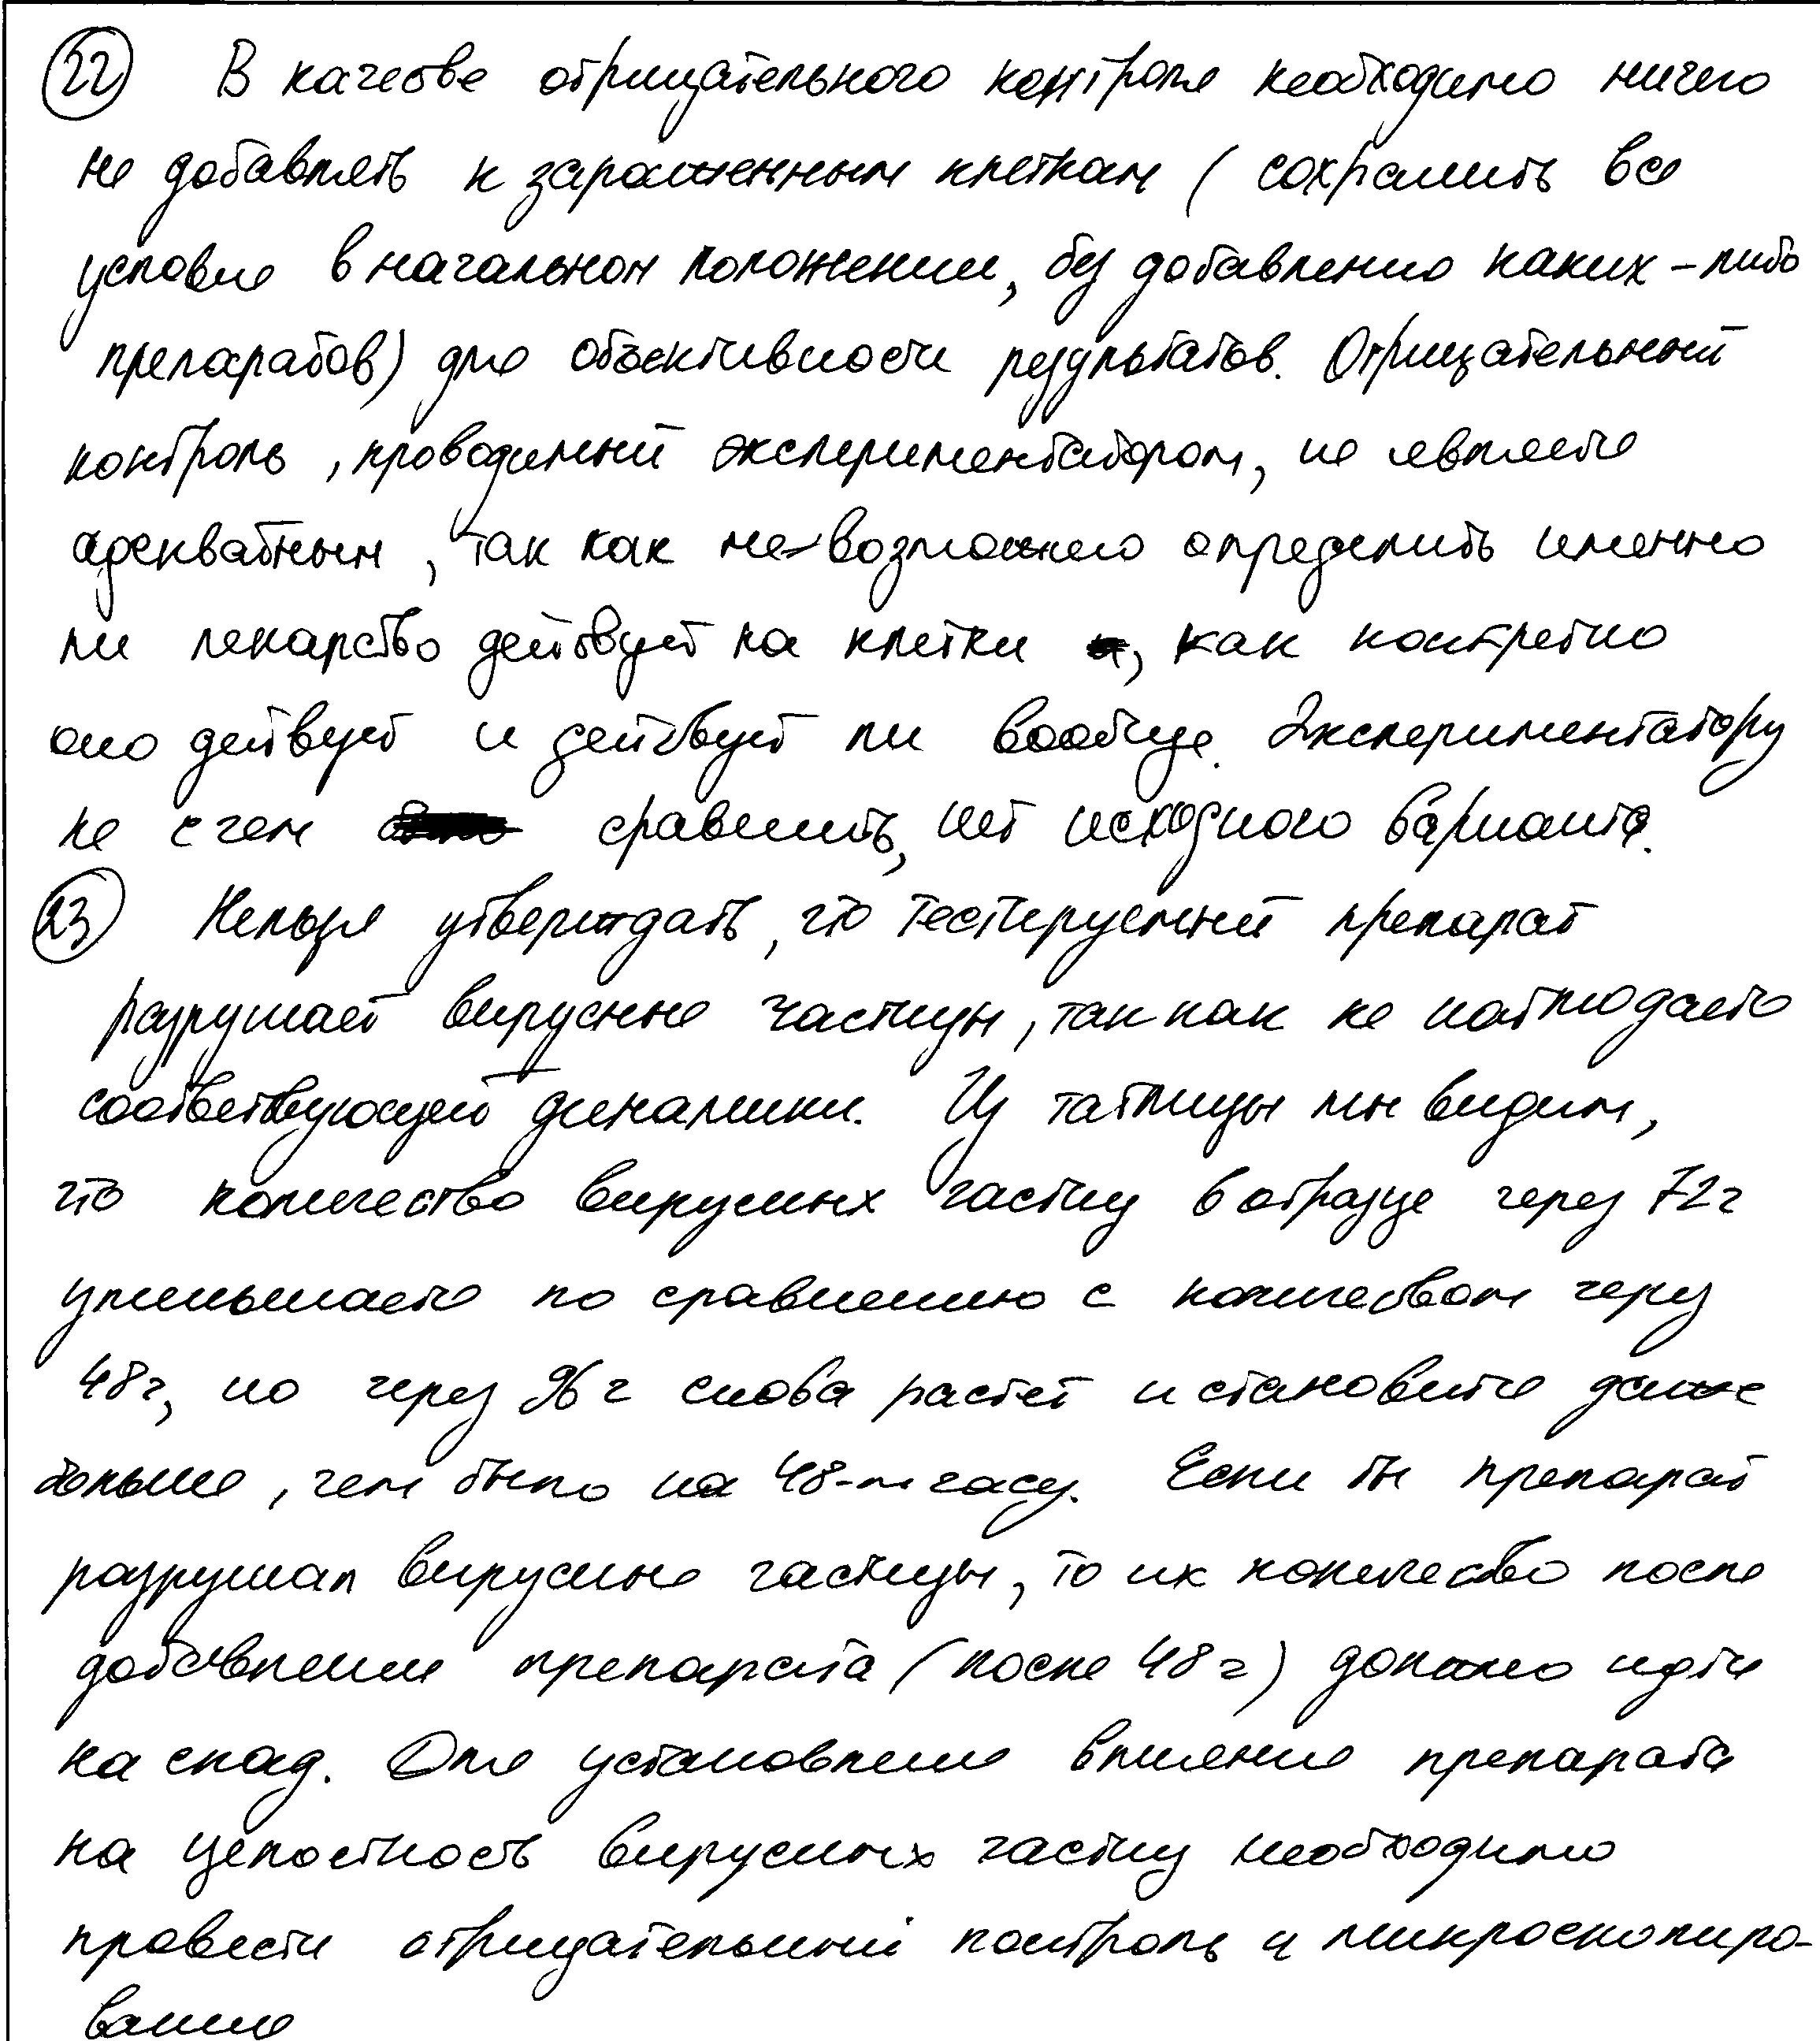 22 В качестве отрицательного контроля необходимо ничего
не добавлять к зараженным клеткам (сохранить все
условия в начальном положении, без добавления каких-либо
препаратов) для объективности результатов. Отрицательный
контроль, проводимый экспериментатором, не является
адекватным, так как невозможно определить именно
ли лекарство действует на клетки, как конкретно
оно действует и действует ли вообще. Экспериментатору
не с чем сравнить, нет исходного варианта.
23 Нельзя утверждать, что тестируемый препарат
разрушает вирусные частицы, так как не наблюдается
соответствующей динамики. Из таблицы мы видим,
что количество вирусных частиц в образце через 72ч
уменьшается по сравнению с количеством через
48ч, но через 96ч снова растет и становится даже
больше, чем было на 48-м часу. Если бы препарат
разрушал вирусные частицы, то их количество после
добавления препарата (после 48ч) должно идти
на спад. Для установления влияния препарата
на целостность вирусных частиц необходимо
провести отрицательный контроль и микроскопиро-
вание